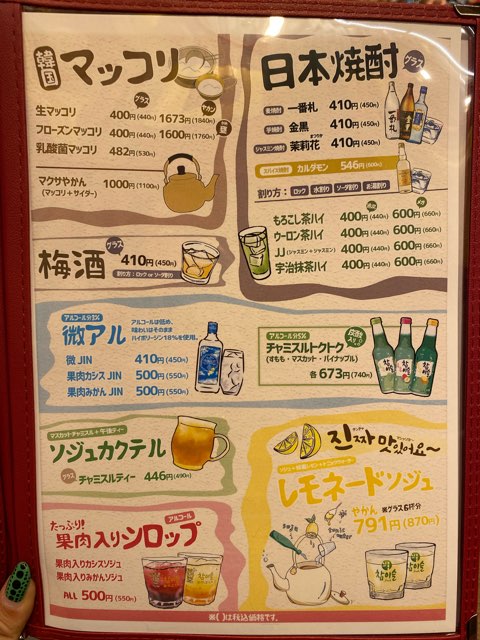 韓国マッコリ
グラス
生マッコリ 400円(440円) 1673円(1840円)
フローズンマッコリ 400円(440円) 1600円(1760円)
乳酸菌マッコリ 482円(530円)
マクサやかん 1000円(1100円)
(マッコリ+サイダー)
日本焼酎 グラス
麦焼酎 一番札 410円(450円)
芋焼酎 金黒 410円(450円)
ジャスミン焼酎 茉莉花 410円(450円)
スパイス焼酎 カルダモン 546円(600円)
割り方: ロック 水割り ソーダ割り お湯割り
もろこし茶ハイ 400円(440円) 600円(660円)
ウーロン茶ハイ 400円(440円) 600円(660円)
JJ(ジャスミン+ジャスミン) 400円(440円) 600円(660円)
宇治抹茶ハイ 400円(440円) 600円(660円)
梅酒 グラス
410円(450円)
割り方:ロック or ソーダ割り
微アル
アルコールは低め、
味わいはそのまま
ハイボリージン18%を使用。
微 JIN 410円(450円)
果肉カシス JIN 500円(550円)
果肉みかん JIN 500円(550円)
アルコール分5%
チャミスルトクトク
(すもも・マスカット・パイナップル)
各673円(740円)
マスカットチャミスル+午後ティー
ソジュカクテル
グラス チャミスルティー 446円(490円)
진짜 맛있어요~
レモネードソジュ
やかん ※グラス6杯分
791円(870円)
soju
tonic water
たっぷり!
アルコール
果肉入りシロップ
果肉入りカシスソジュ
果肉入りみかんソジュ
ALL 500円(550円)
※( )は税込価格です。